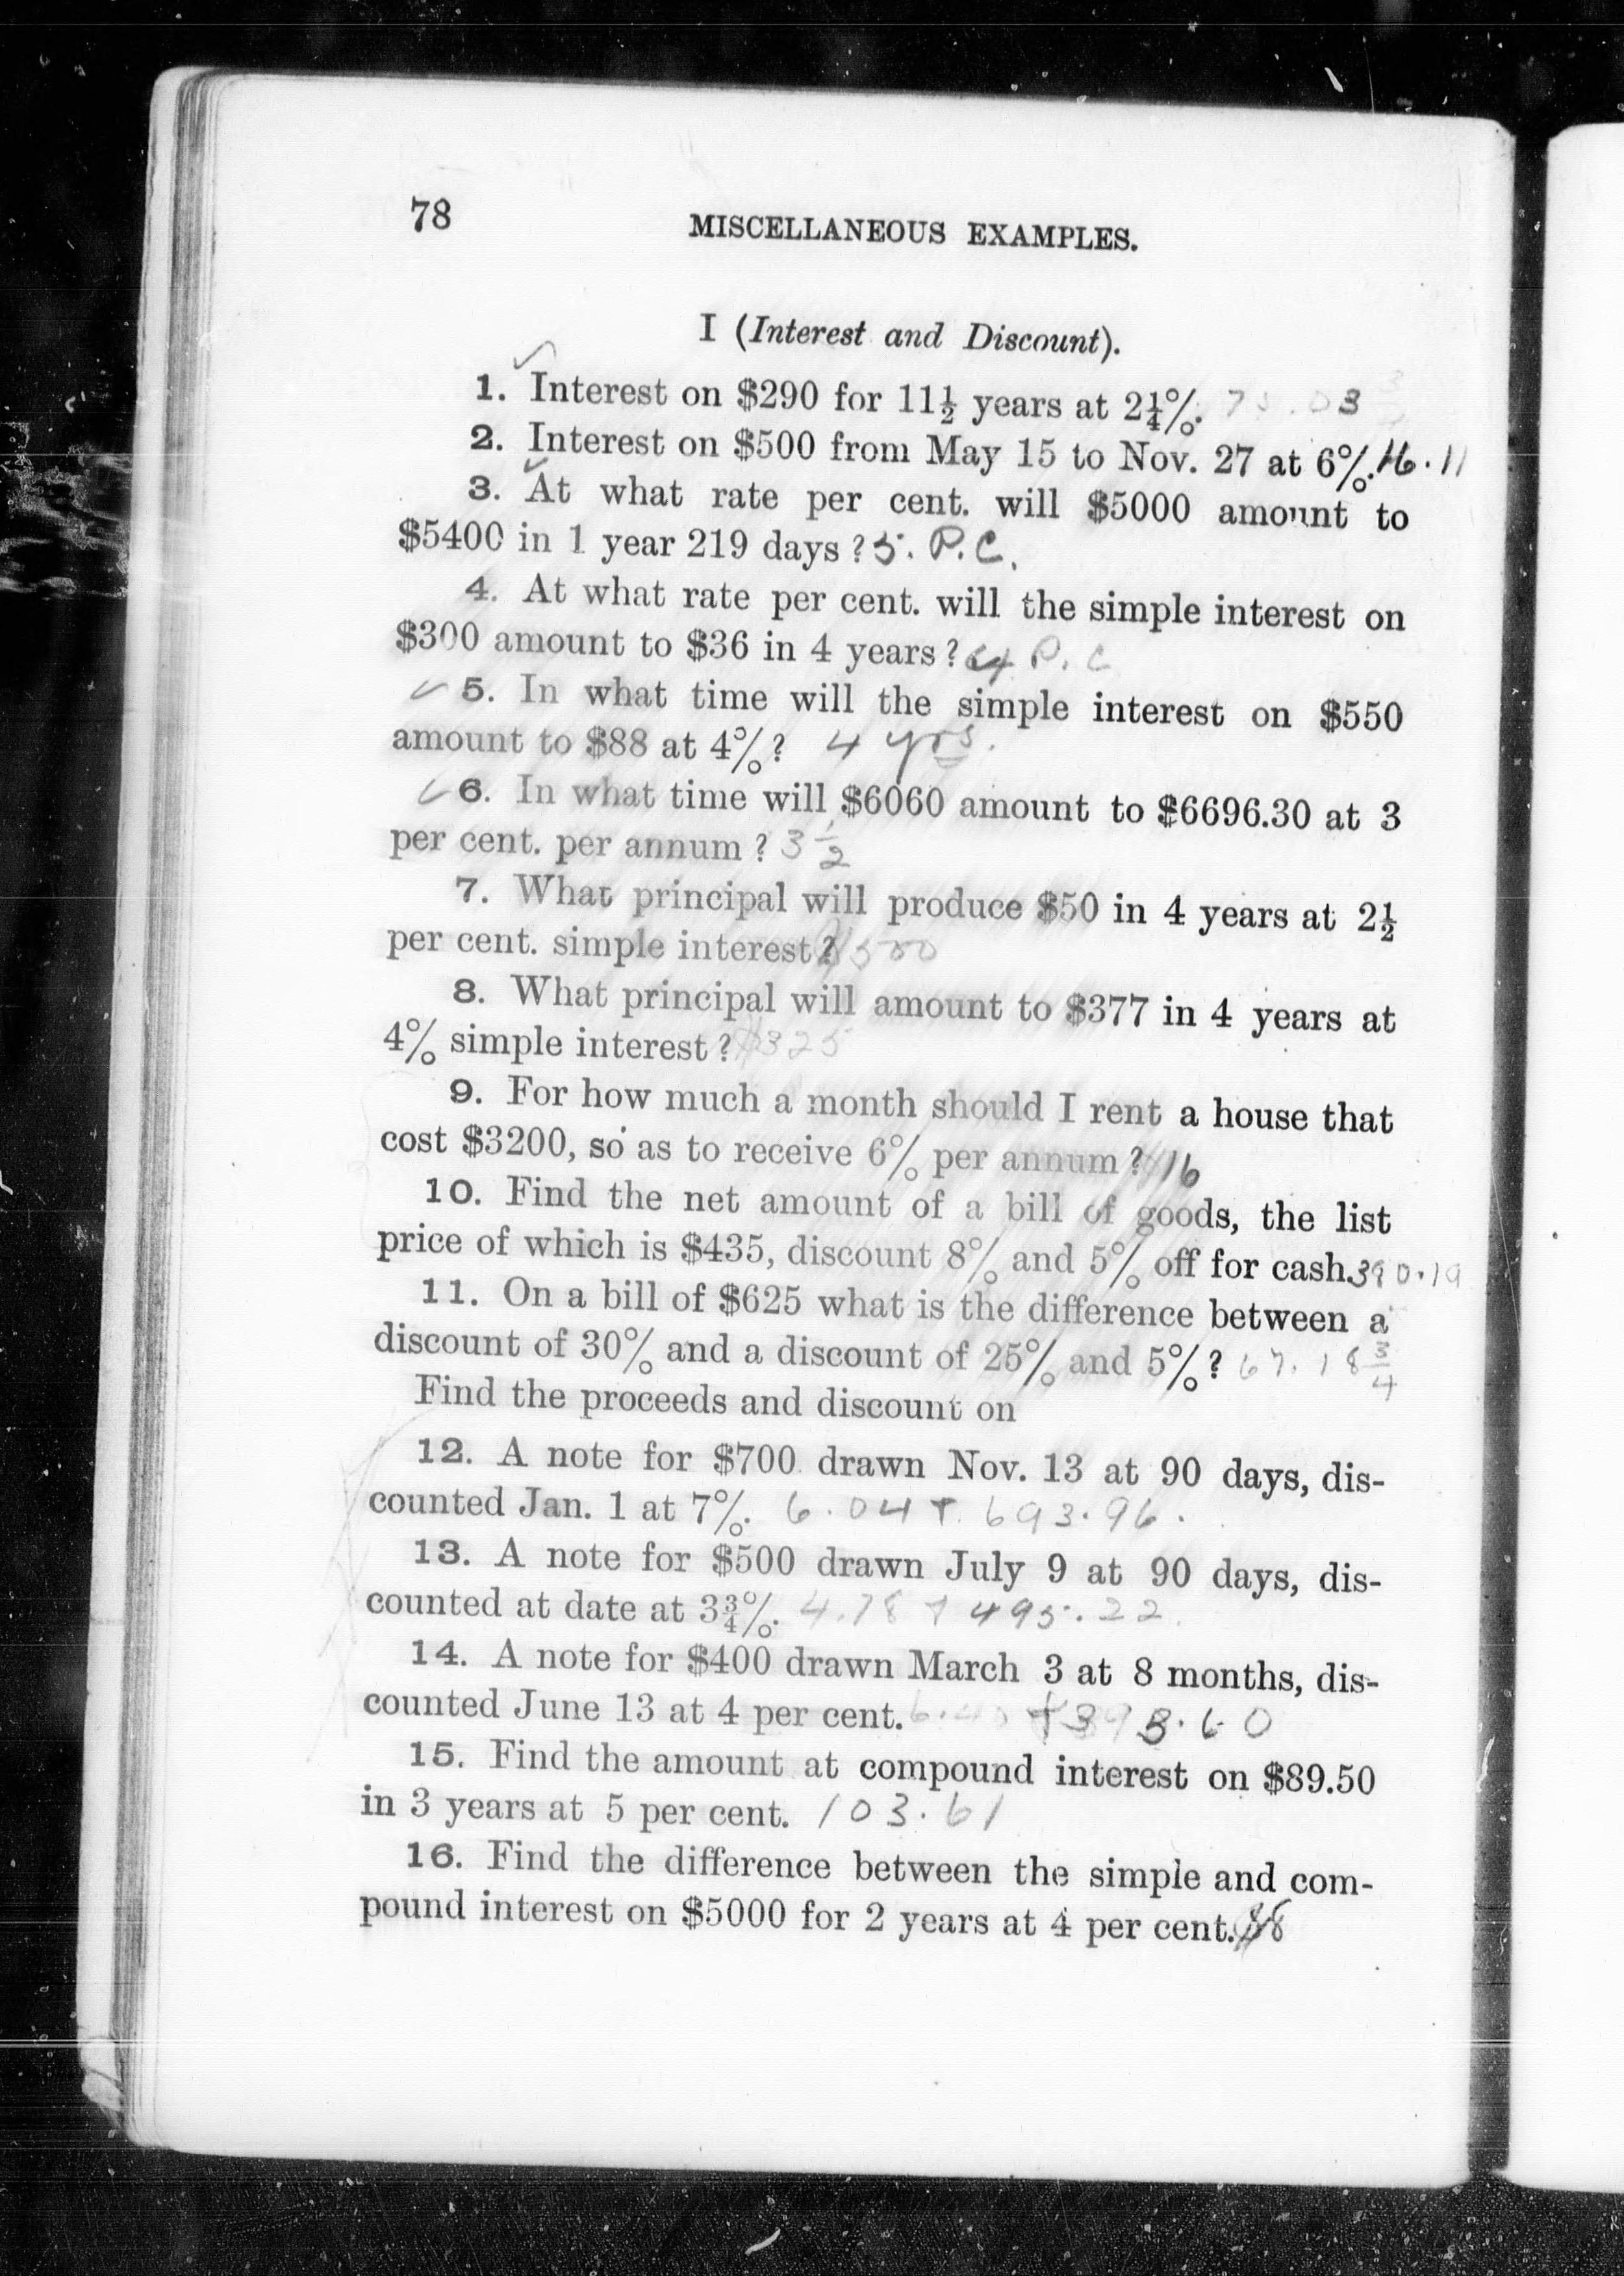 78
MISCELLANEOUS EXAMPLES.
I (Interest and Discount).
1. Interest on $290 for 11½ years at 2¼%. 75.03
2. Interest on $500 from May 15 to Nov. 27 at 6%. 16.11
3. At what rate per cent. will $5000 amount to
$5400 in 1 year 219 days? 5. P.C.
4. At what rate per cent. will the simple interest on
$300 amount to $36 in 4 years? P.C
5. In what time will the simple interest on $550
amount to $88 at 4%? 4 yrs.
6. In what time will $6060 amount to $6696.30 at 3
per cent. per annum? 3½
7. What principal will produce $50 in 4 years at 2½
per cent. simple interest? $500
8. What principal will amount to $377 in 4 years at
4% simple interest? $325
9. For how much a month should I rent a house that
cost $3200, so as to receive 6% per annum? 16
10. Find the net amount of a bill of goods, the list
price of which is $435, discount 8% and 5% off for cash. 380.19
11. On a bill of $625 what is the difference between a
discount of 30% and a discount of 25% and 5%? 67.18¾
Find the proceeds and discount on
12. A note for $700 drawn Nov. 13 at 90 days, dis-
counted Jan. 1 at 7%. 6.04 + 693.96.
13. A note for $500 drawn July 9 at 90 days, dis-
counted at date at 3¾%. 4.78 + 495.22
14. A note for $400 drawn March 3 at 8 months, dis-
counted June 13 at 4 per cent. + 393.60
15. Find the amount at compound interest on $89.50
in 3 years at 5 per cent. 103.61
16. Find the difference between the simple and com-
pound interest on $5000 for 2 years at 4 per cent. $8